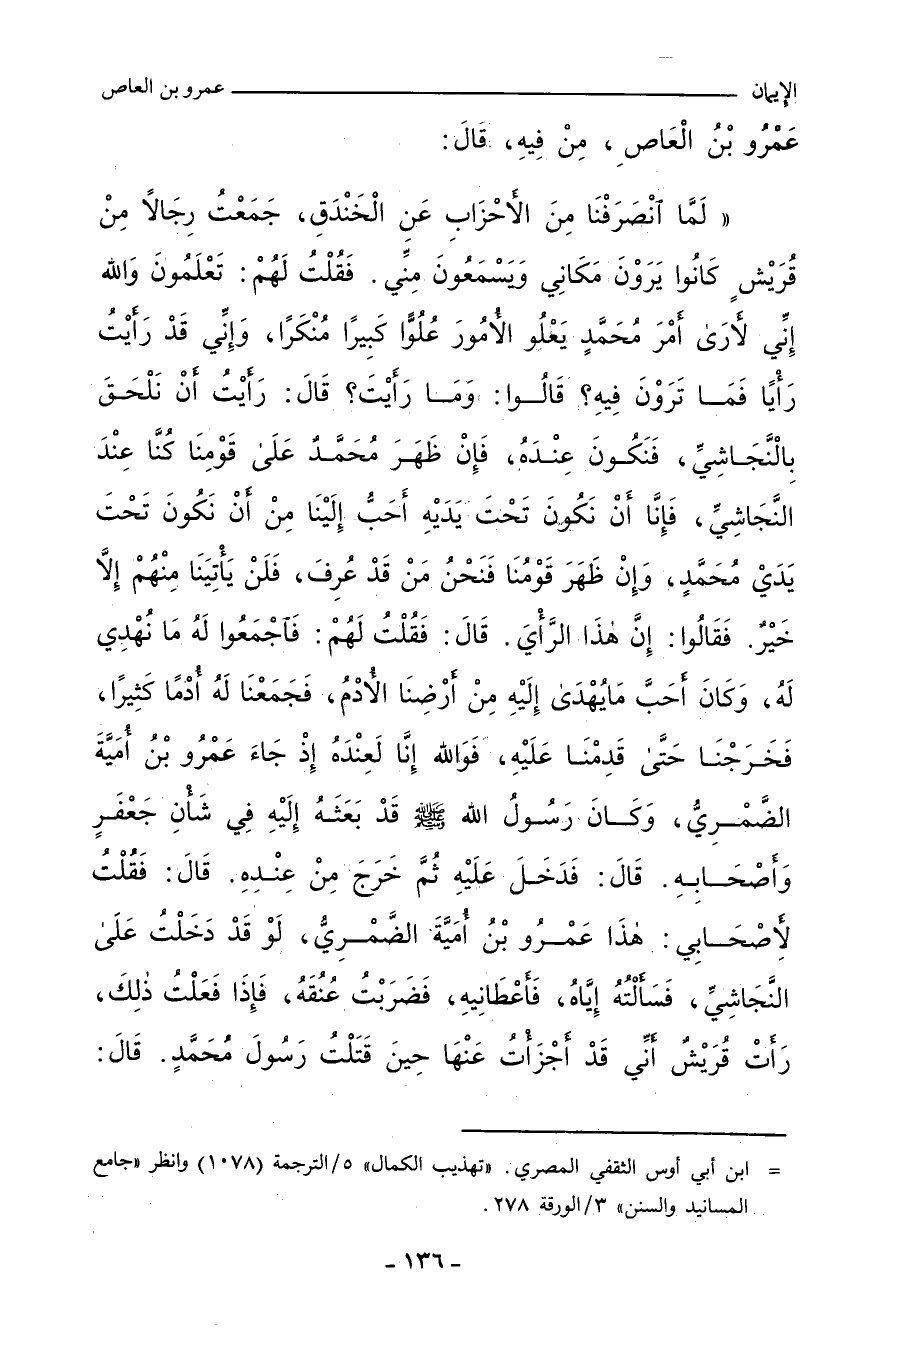 الإيمان ــــــــــــــــــــ عمرو بن العاص
عَمْرُو بْنُ الْعَاصِ ، مِنْ فِيهِ، قَالَ:
« لَمَّا ٱنْصَرَفْنَا مِنَ الْأَحْزَابِ عَنِ الْخَنْدَقِ، جَمَعْتُ رِجَالاً مِنْ
قُرَيْشٍ كَانُوا يَرَوْنَ مَكَانِي وَيَسْمَعُونَ مِنِّي. فَقُلْتُ لَهُمْ: تَعْلَمُونَ وَالله
إِنِّي لَأَرَىٰ أَمْرَ مُحَمَّدٍ يَعْلُو الْأُمُورَ عُلُوًّا كَبِيرًا مُنْكَرًا، وَإِنِّي قَدْ رَأَيْتُ
رَأْيًا فَمَا تَرَوْنَ فِيهِ؟ قَالُوا: وَمَا رَأَيْتَ؟ قَالَ: رَأَيْتُ أَنْ نَلْحَقَ
بِالْنَّجَاشِيِّ، فَنَكُونَ عِنْدَهُ، فَإِنْ ظَهَرَ مُحَمَّدٌ عَلَىٰ قَوْمِنَا كُنَّا عِنْدَ
النَّجَاشِيِّ، فَإِنَّا أَنْ نَكُونَ تَحْتَ يَدَيْهِ أَحَبُّ إِلَيْنَا مِنْ أَنْ نَكُونَ تَحْتَ
يَدَيْ مُحَمَّدٍ، وَإِنْ ظَهَرَ قَوْمُنَا فَنَحْنُ مَنْ قَدْ عُرِفَ، فَلَنْ يَأْتِيَنَا مِنْهُمْ إِلَّا
خَيْرٌ. فَقَالُوا: إِنَّ هٰذَا الرَّأْيَ. قَالَ: فَقُلْتُ لَهُمْ: فَٱجْمَعُوا لَهُ مَا نُهْدِي
لَهُ، وَكَانَ أَحَبَّ مَايُهْدَىٰ إِلَيْهِ مِنْ أَرْضِنَا الْأُدْمُ، فَجَمَعْنَا لَهُ أُدْمًا كَثِيرًا،
فَخَرَجْنَا حَتَّىٰ قَدِمْنَا عَلَيْهِ، فَوَالله إِنَّا لَعِنْدَهُ إِذْ جَاءَ عَمْرُو بْنُ أُمَيَّةَ
الضَّمْرِيُّ، وَكَانَ رَسُولُ الله ﷺ قَدْ بَعَثَهُ إِلَيْهِ فِي شَأْنِ جَعْفَرٍ
وَأَصْحَابِهِ. قَالَ: فَدَخَلَ عَلَيْهِ ثُمَّ خَرَجَ مِنْ عِنْدِهِ. قَالَ: فَقُلْتُ
لِأَصْحَابِي: هٰذَا عَمْرُو بْنُ أُمَيَّةَ الضَّمْرِيُّ، لَوْ قَدْ دَخَلْتُ عَلَىٰ
النَّجَاشِيِّ، فَسَأَلْتُهُ إِيَّاهُ، فَأَعْطَانِيهِ، فَضَرَبْتُ عُنُقَهُ، فَإِذَا فَعَلْتُ ذٰلِكَ،
رَأَتْ قُرَيْشٌ أَنِّي قَدْ أَجْزَأْتُ عَنْهَا حِينَ قَتَلْتُ رَسُولَ مُحَمَّدٍ. قَالَ:
= ابن أبي أوس الثقفي المصري. «تهذيب الكمال» ٥/الترجمة (١٠٧٨) وانظر «جامع
المسانيد والسنن» ٣/الورقة ٢٧٨.
- ١٣٦ -